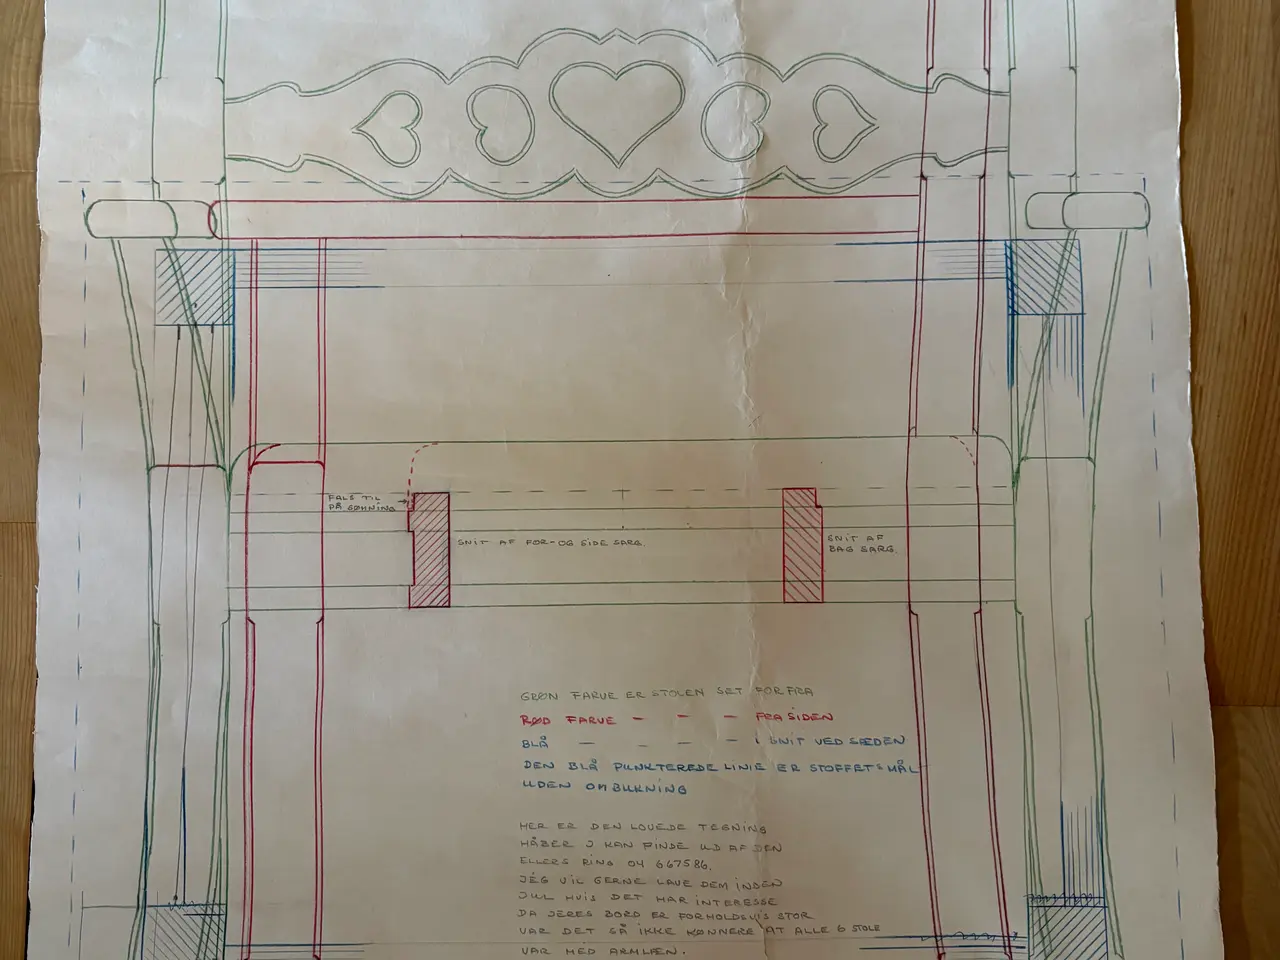 FALS TIL
PÅ SØMNING
SNIT AF FOR-OG SIDE SARG.
SNIT AF
BAG SARG.
GRØN FARVE ER STOLEN SET FORFRA
RØD FARVE — — — FRA SIDEN
BLÅ — — — — I SNIT VED SÆDEN
DEN BLÅ PUNKTEREDE LINIE ER STOFFETS MÅL
UDEN OMBUKNING
HER ER DEN LOVEDE TEGNING
HÅBER I KAN FINDE UD AF DEN
ELLERS RING 04 667586.
JEG VIL GERNE LAVE DEM INDEN
JUL HVIS DET HAR INTERESSE
DA JERES BORD ER FORHOLDSVIS STOR
VAR DET SÅ IKKE KØNNERE AT ALLE 6 STOLE
VAR MED ARMLÆN.